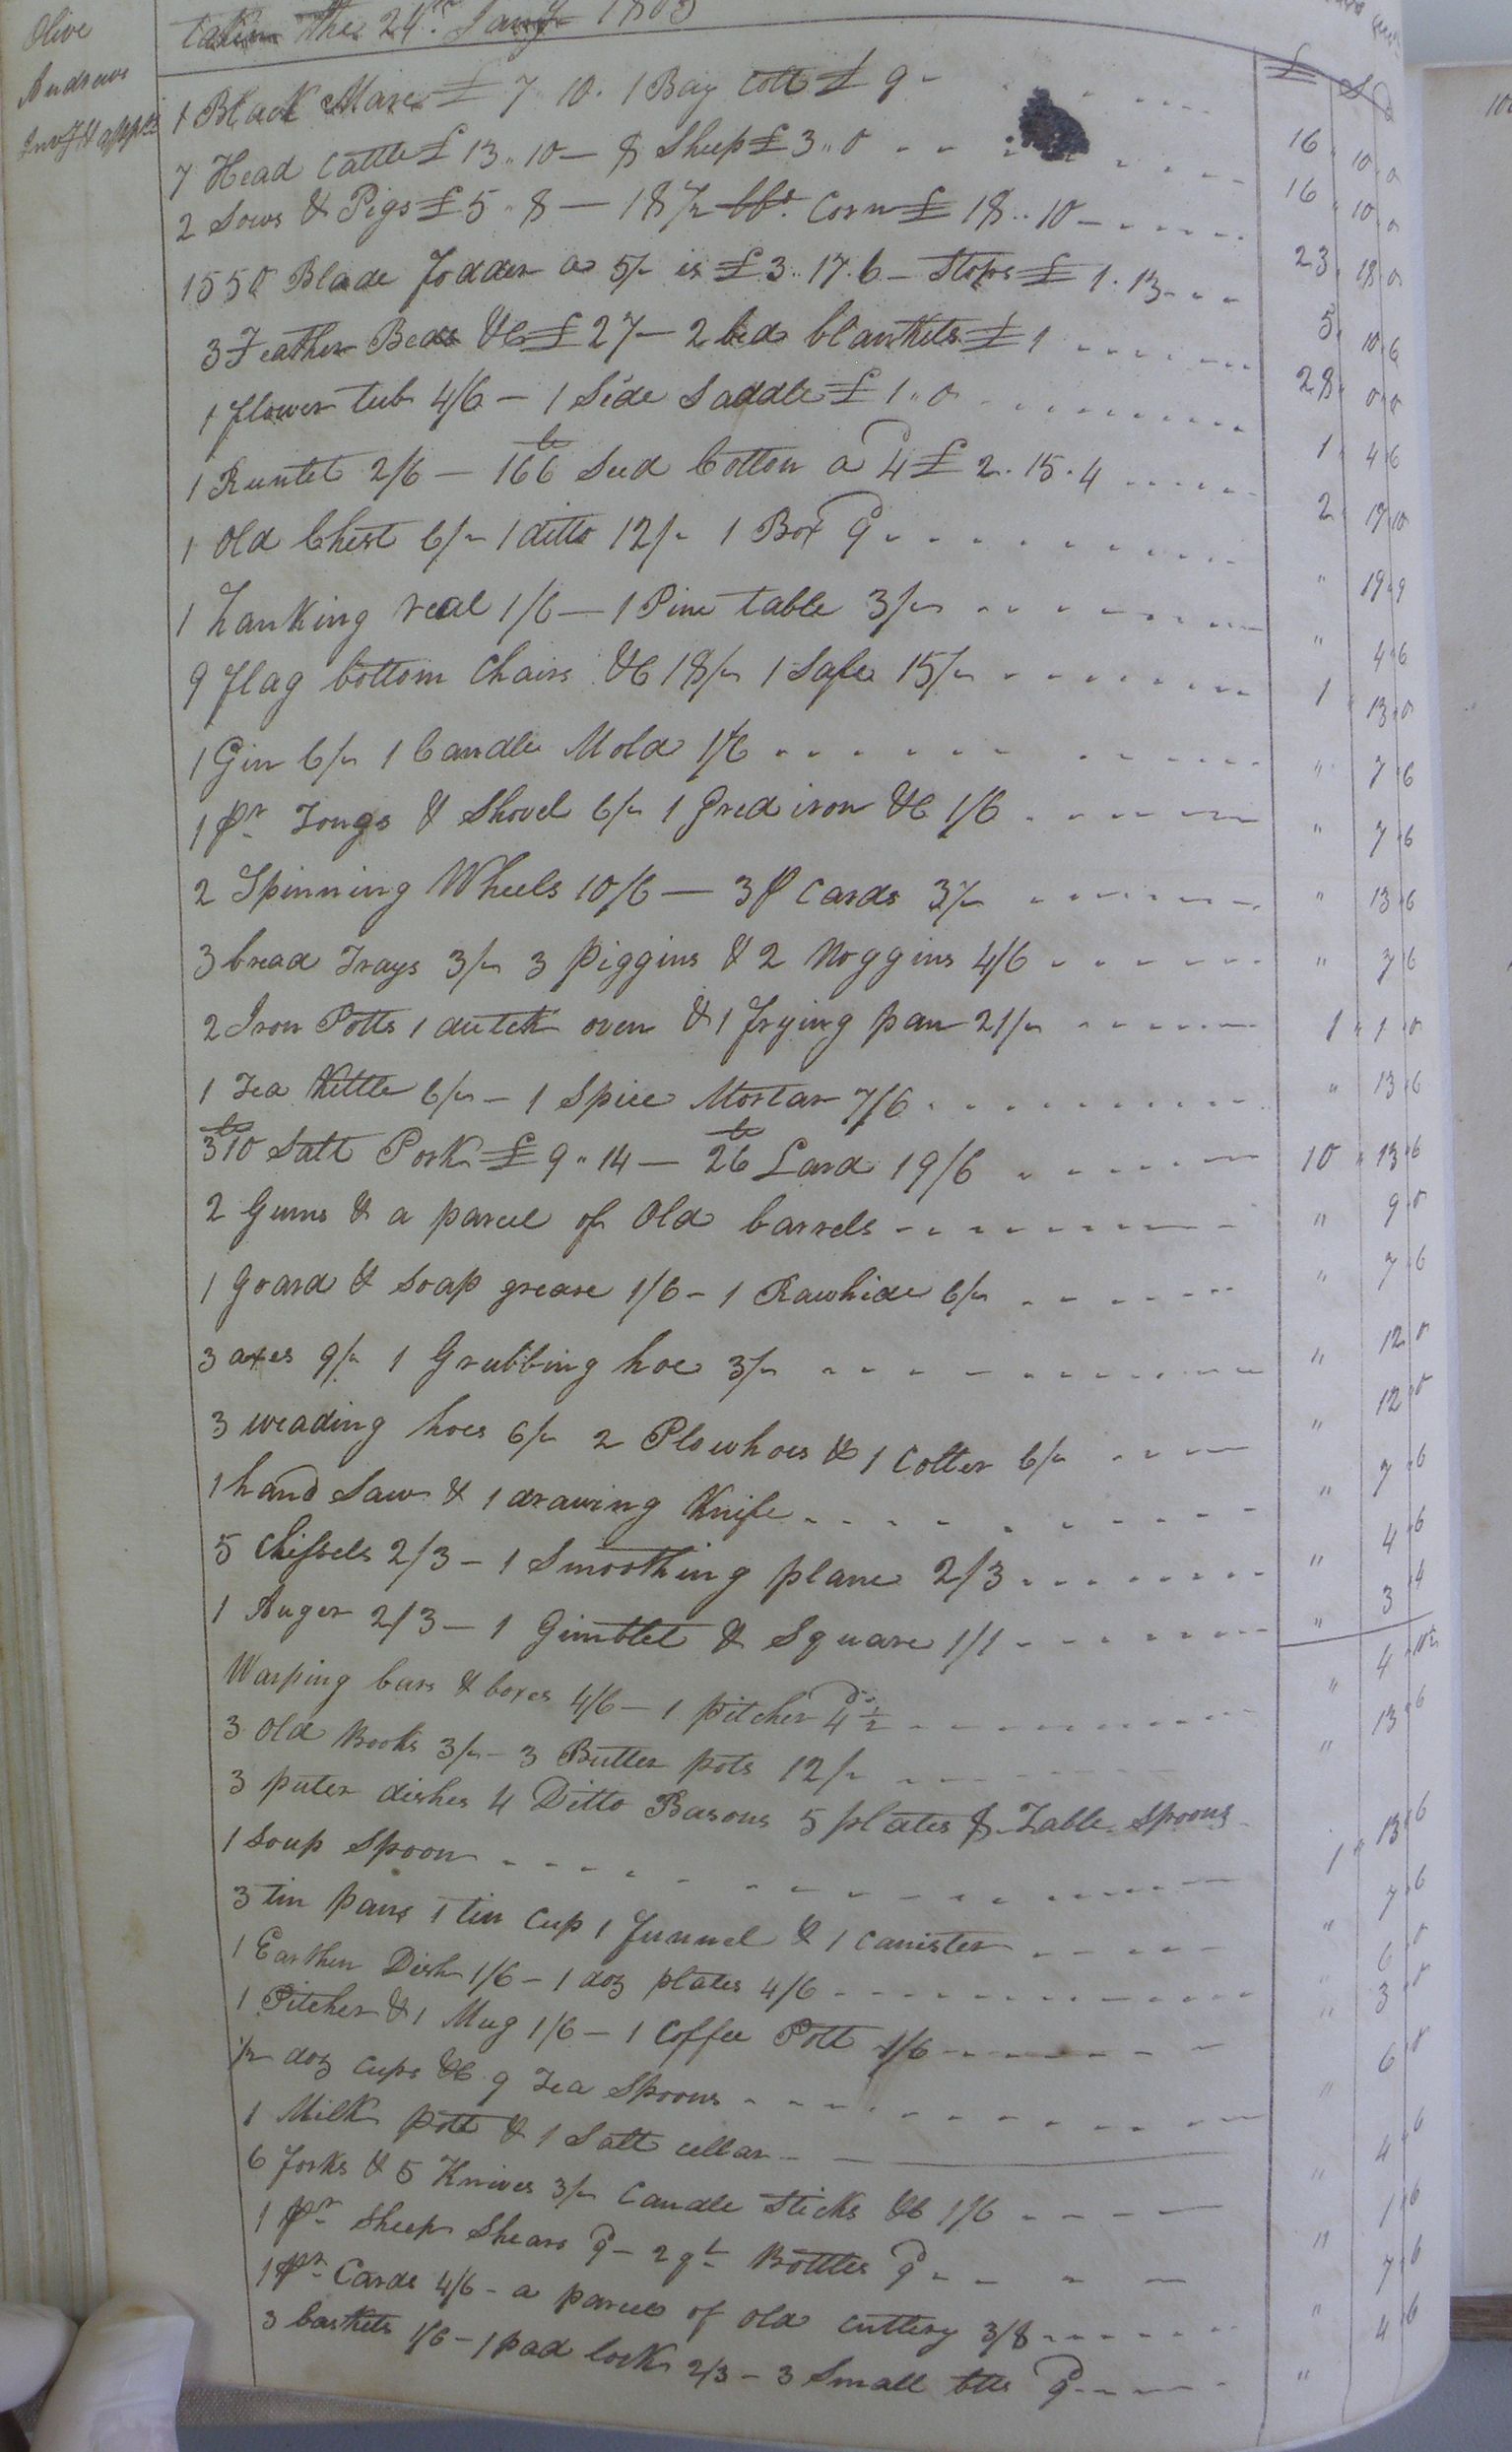 Olive
Andrews
Invy & appst
taken the 24th Jany 1803
£ S D
1 Black Mare £ 7 10. 1 Bay Colt £ 9 - 16 " 10 " 0
7 Head Cattle £ 13 " 10 - 8 Sheep £ 3 " 0 16 " 10 " 0
2 Sows & Pigs £ 5 " 8 - 18 1/2 bbs. Corn £ 18 " 10 - 23 " 18 " 0
1550 Blade fodder a 5/- is £ 3 " 17 " 6 - Stops £ 1 " 13 5 " 10 " 6
3 Feather Beds &c £ 27 - 2 bed blankets £ 1 28 " 0 " 0
1 flower tub 4/6 - 1 Side Saddle £ 1 " 0 1 " 4 " 6
1 Runlet 2/6 - 166 lb Seed Cotton a 4d £ 2 " 15 " 4 2 " 17 " 10
1 Old Chest 6/- 1 ditto 12/- 1 Box 9d " 19 " 9
1 hanking real 1/6 - 1 Pine table 3/- " 4 " 6
9 flag bottom Chairs &c 18/- 1 Safe 15/- 1 " 13 " 0
1 Gin 6/- 1 Candle Mold 1/6 " 7 " 6
1 pr Tongs & Shovel 6/- 1 Gred iron &c 1/6 " 7 " 6
2 Spinning Wheels 10/6 - 3 p Cards 3/- " 13 " 6
3 bread Trays 3/- 3 piggins & 2 Noggins 4/6 " 7 " 6
2 Iron Potts 1 dutch oven & 1 frying pan 21/- 1 " 1 " 0
1 Tea Kettle 6/- - 1 Spice Mortar 7/6 " 13 " 6
310 lb Salt Pork £ 9 " 14 - 26 lb Lard 19/6 10 " 13 " 6
2 Gums & a parcel of Old barrels " 9 " 0
1 Goard & Soap grease 1/6 - 1 Rawhide 6/- " 7 " 6
3 axes 9/- 1 Grubbing hoe 3/- " 12 " 0
3 weading hoes 6/- 2 Plowhoes & 1 Colter 6/- " 12 " 0
1 hand Saw & 1 drawing Knife " 7 " 6
5 Chissels 2/3 - 1 Smoothing plane 2/3 " 4 " 6
1 Auger 2/3 - 1 Gimblet & Square 1/1 " 3 " 4
Warping bars & boxes 4/6 - 1 pitcher 4 1/2d " 4 " 10 1/2
3 Old Books 3/- - 3 Butter pots 12/- " 13 " 6
3 puter dishes 4 Ditto Basons 5 plates 8 Table Spoons
1 Soup Spoon 1 " 13 " 6
3 tin pans 1 tin Cup 1 funnel & 1 canister " 7 " 6
1 Earthen Dish 1/6 - 1 doz plates 4/6 " 6 " 0
1 Pitcher & 1 Mug 1/6 - 1 Coffee Pott 1/6 " 3 " 0
1/2 doz cups &c 9 Tea Spoons " 6 " 0
1 Milk pott & 1 Salt cellar
6 forks & 5 Knives 3/- Candle Sticks &c 1/6 " 4 " 6
1 pr Sheep Shears 9d - 2 qt Bottles 9d " 1 " 6
1 pr Cards 4/6 - a parcel of old cuttery 3/8 " 7 " 6
3 baskets 1/6 - 1 pad lock 2/3 - 3 Small btts 9d " 4 " 6